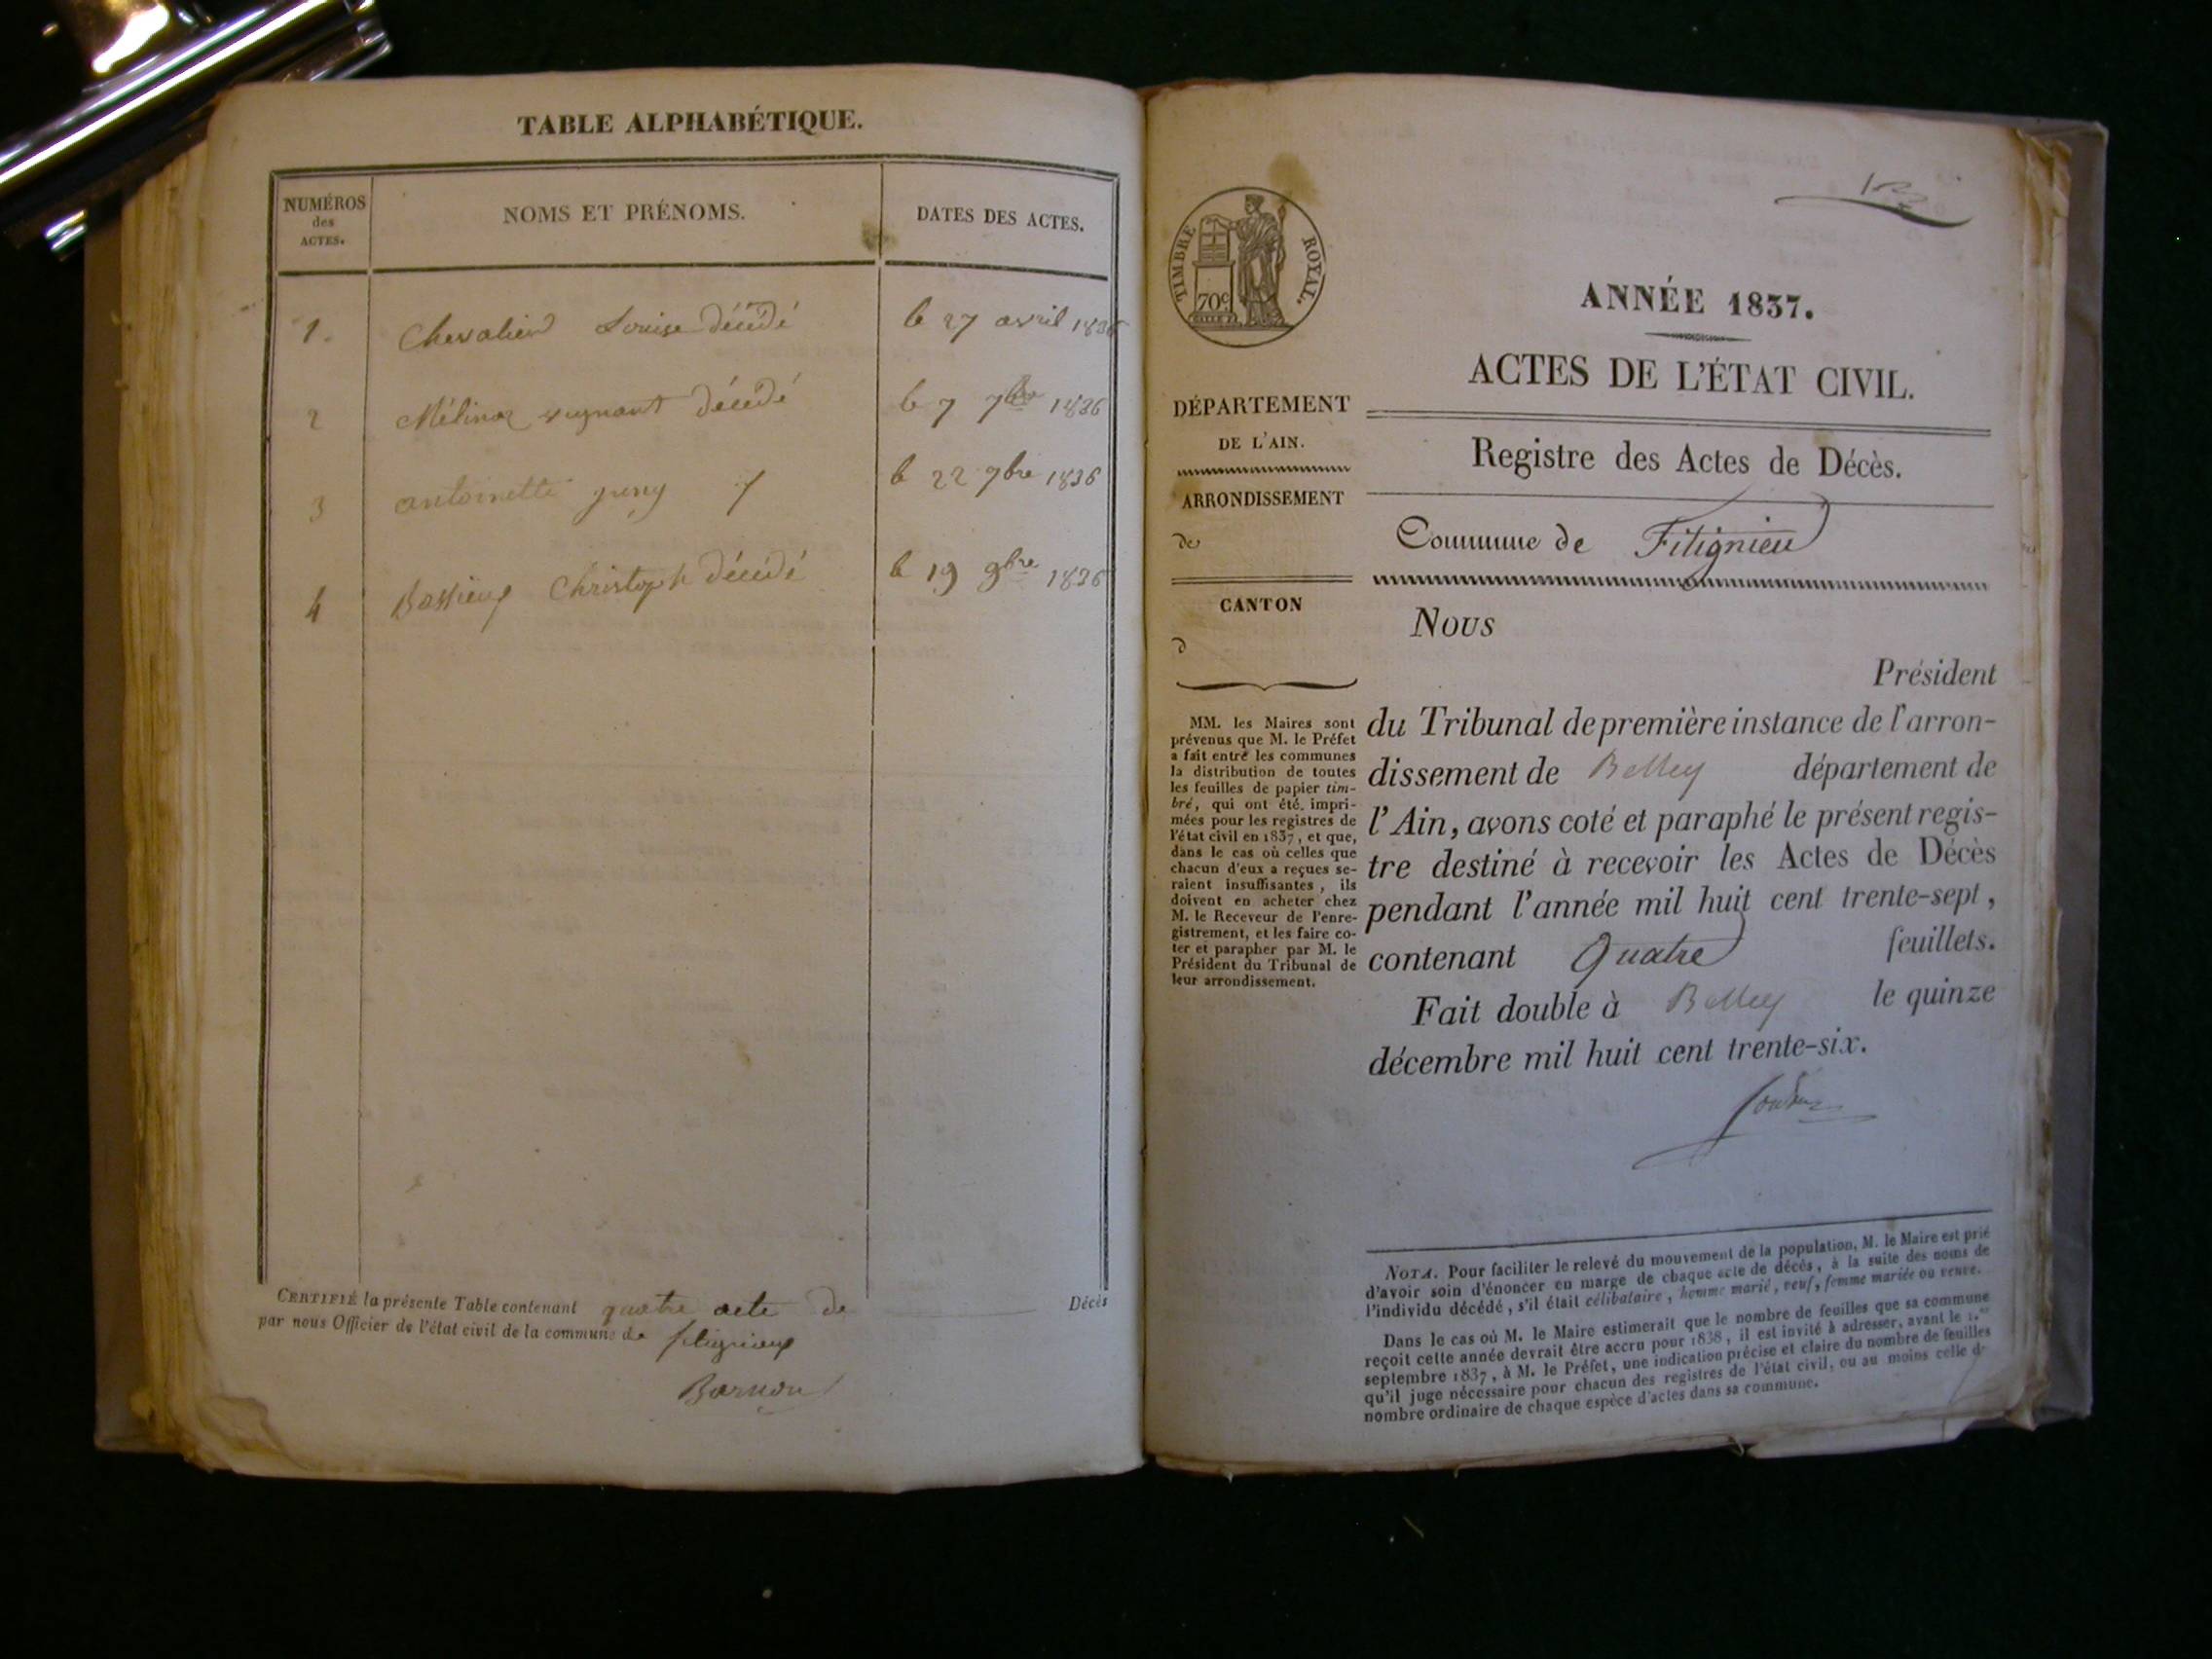 TABLE ALPHABÉTIQUE.
NUMÉROS
des
ACTES.
NOMS ET PRÉNOMS.
DATES DES ACTES.
1. Chevalier Louise décédé le 27 avril 1836
2 Mélinaz décédé le 7 7bre 1836
3 antoinette le 22 7bre 1836
4 Christoph décédé le 19 9bre 1836
CERTIFIÉ la présente Table contenant quatre acte de Décès
par nous Officier de l'état civil de la commune de
TIMBRE ROYAL.
70c
ANNÉE 1837.
ACTES DE L'ÉTAT CIVIL.
DÉPARTEMENT
DE L'AIN.
ARRONDISSEMENT
de
CANTON
d
MM. les Maires sont
prévenus que M. le Préfet
a fait entre les communes
la distribution de toutes
les feuilles de papier tim-
bré, qui ont été impri-
mées pour les registres de
l'état civil en 1837, et que,
dans le cas où celles que
chacun d'eux a reçues se-
raient insuffisantes, ils
doivent en acheter chez
M. le Receveur de l'enre-
gistrement, et les faire co-
ter et parapher par M. le
Président du Tribunal de
leur arrondissement.
Registre des Actes de Décès.
Commune de Fitignieu
NOUS
Président
du Tribunal de première instance de l'arron-
dissement de Belley département de
l'Ain, avons coté et paraphé le présent regis-
tre destiné à recevoir les Actes de Décès
pendant l'année mil huit cent trente-sept,
contenant Quatre feuillets.
Fait double à Belley le quinze
décembre mil huit cent trente-six.
NOTA. Pour faciliter le relevé du mouvement de la population, M. le Maire est prié
d'avoir soin d'énoncer en marge de chaque acte de décès, à la suite des noms de
l'individu décédé, s'il était célibataire, homme marié, veuf, femme mariée ou veuve.
Dans le cas où M. le Maire estimerait que le nombre de feuilles que sa commune
reçoit cette année devrait être accru pour 1838, il est invité à adresser, avant le 1.er
septembre 1837, à M. le Préfet, une indication précise et claire du nombre de feuilles
qu'il juge nécessaire pour chacun des registres de l'état civil, ou au moins celle du
nombre ordinaire de chaque espèce d'actes dans sa commune.